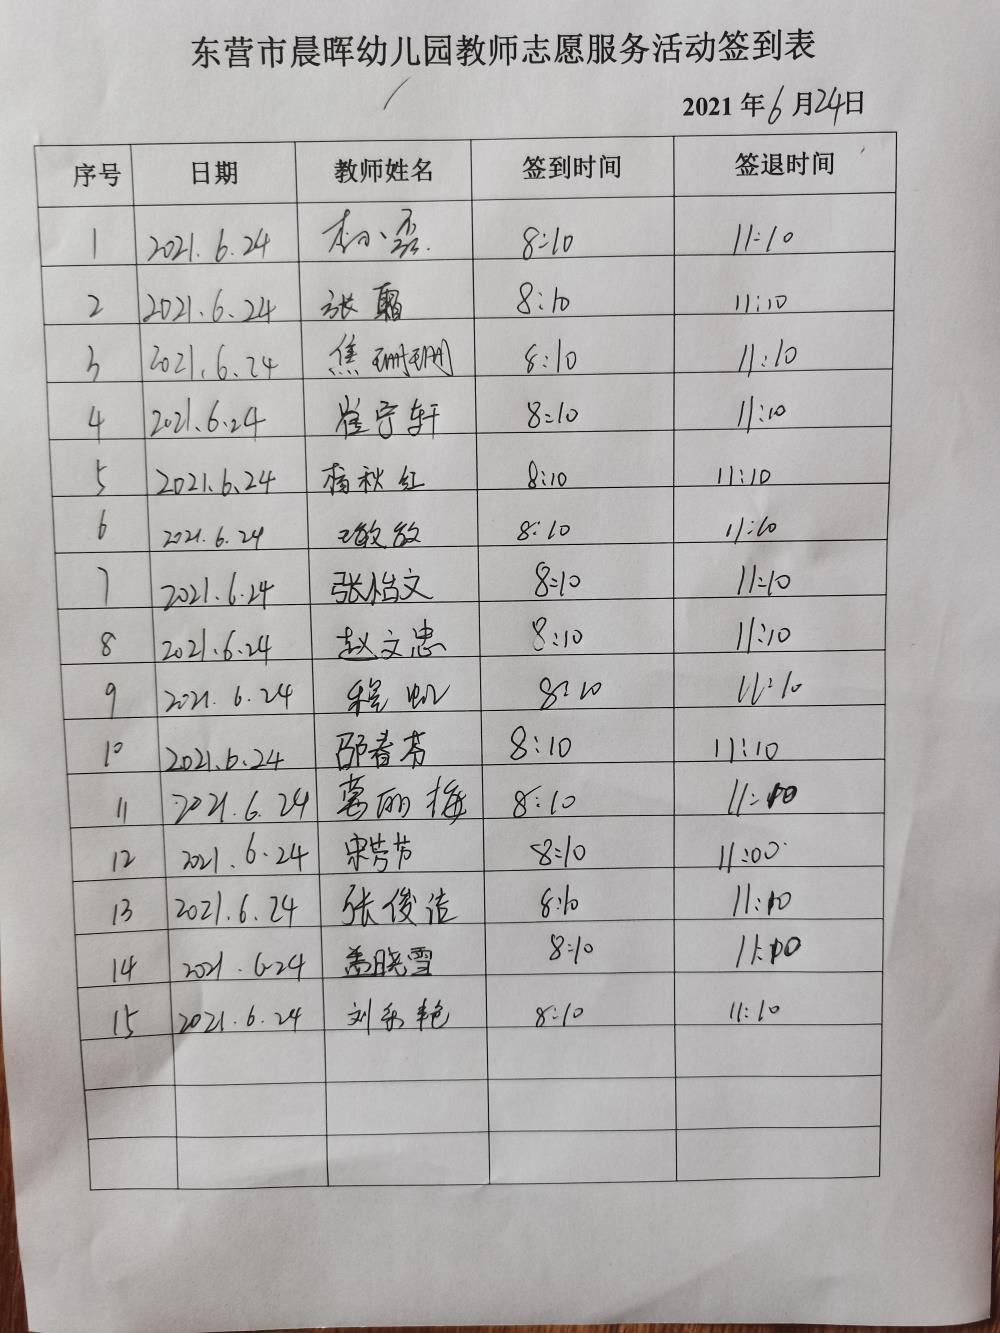 东营市晨晖幼儿园教师志愿服务活动签到表
2021 年 6 月 24 日
序号 日期 教师姓名 签到时间 签退时间
1 2021.6.24 8:10 11:10
2 2021.6.24 张 8:10 11:10
3 2021.6.24 焦珊珊 8:10 11:10
4 2021.6.24 崔宁轩 8:10 11:10
5 2021.6.24 杨秋红 8:10 11:10
6 2021.6.24 王敏敏 8:10 11:10
7 2021.6.24 张怡文 8:10 11:10
8 2021.6.24 赵文忠 8:10 11:10
9 2021.6.24 程帆 8:10 11:10
10 2021.6.24 邵春芳 8:10 11:10
11 2021.6.24 葛丽梅 8:10 11:10
12 2021.6.24 宋芳芳 8:10 11:00
13 2021.6.24 张俊洁 8:10 11:10
14 2021.6.24 盖晓雪 8:10 11:10
15 2021.6.24 刘 艳 8:10 11:10